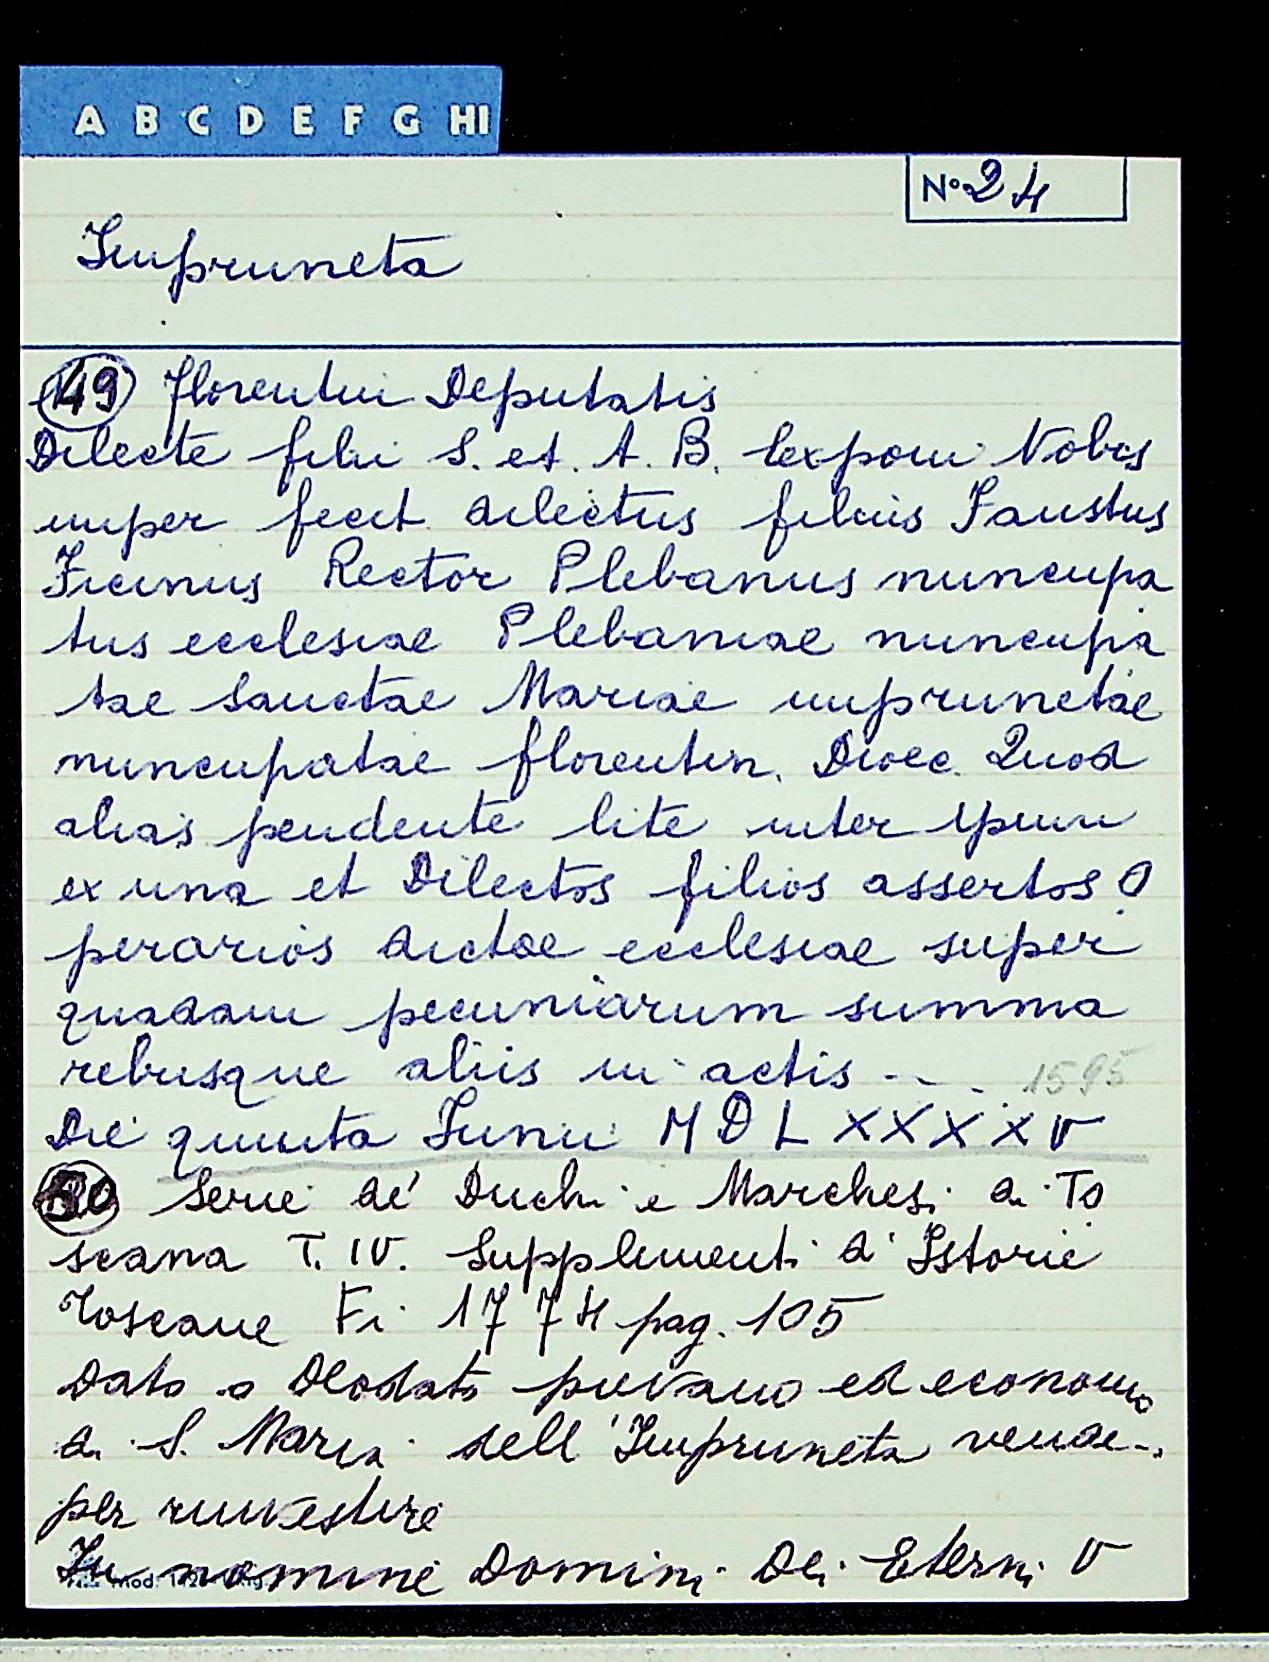 A B C D E F G HI
N° 24
Impruneta
49 florentin Deputatis
Dilecte fili S. et. A. B. Exponi Nobis
nuper fecit dilectus filius Faustus
Ficinus Rector Plebanus nuncupa
tus ecclesiae Plebaniae nuncupa
tae Sanctae Mariae imprunetae
nuncupatae florentin. Dioec. Quod
alias pendente lite inter ipsum
ex una et Dilectos filios assertos O
perarios dictae ecclesiae super
quadam pecuniarum summa
rebusque aliis in actis - - -
1595
Die quinta Junii MDLXXXXV
50 Serie de' Duchi e Marchesi di To
scana T. IV. Supplimenti d'Istorie
Toscane Fi 1774 pag. 105
Dato o Deodato pievano ed economo
di S. Maria dell'Impruneta vende..
per rinvestire
In nomine Domini Dei Eterni V
mod.